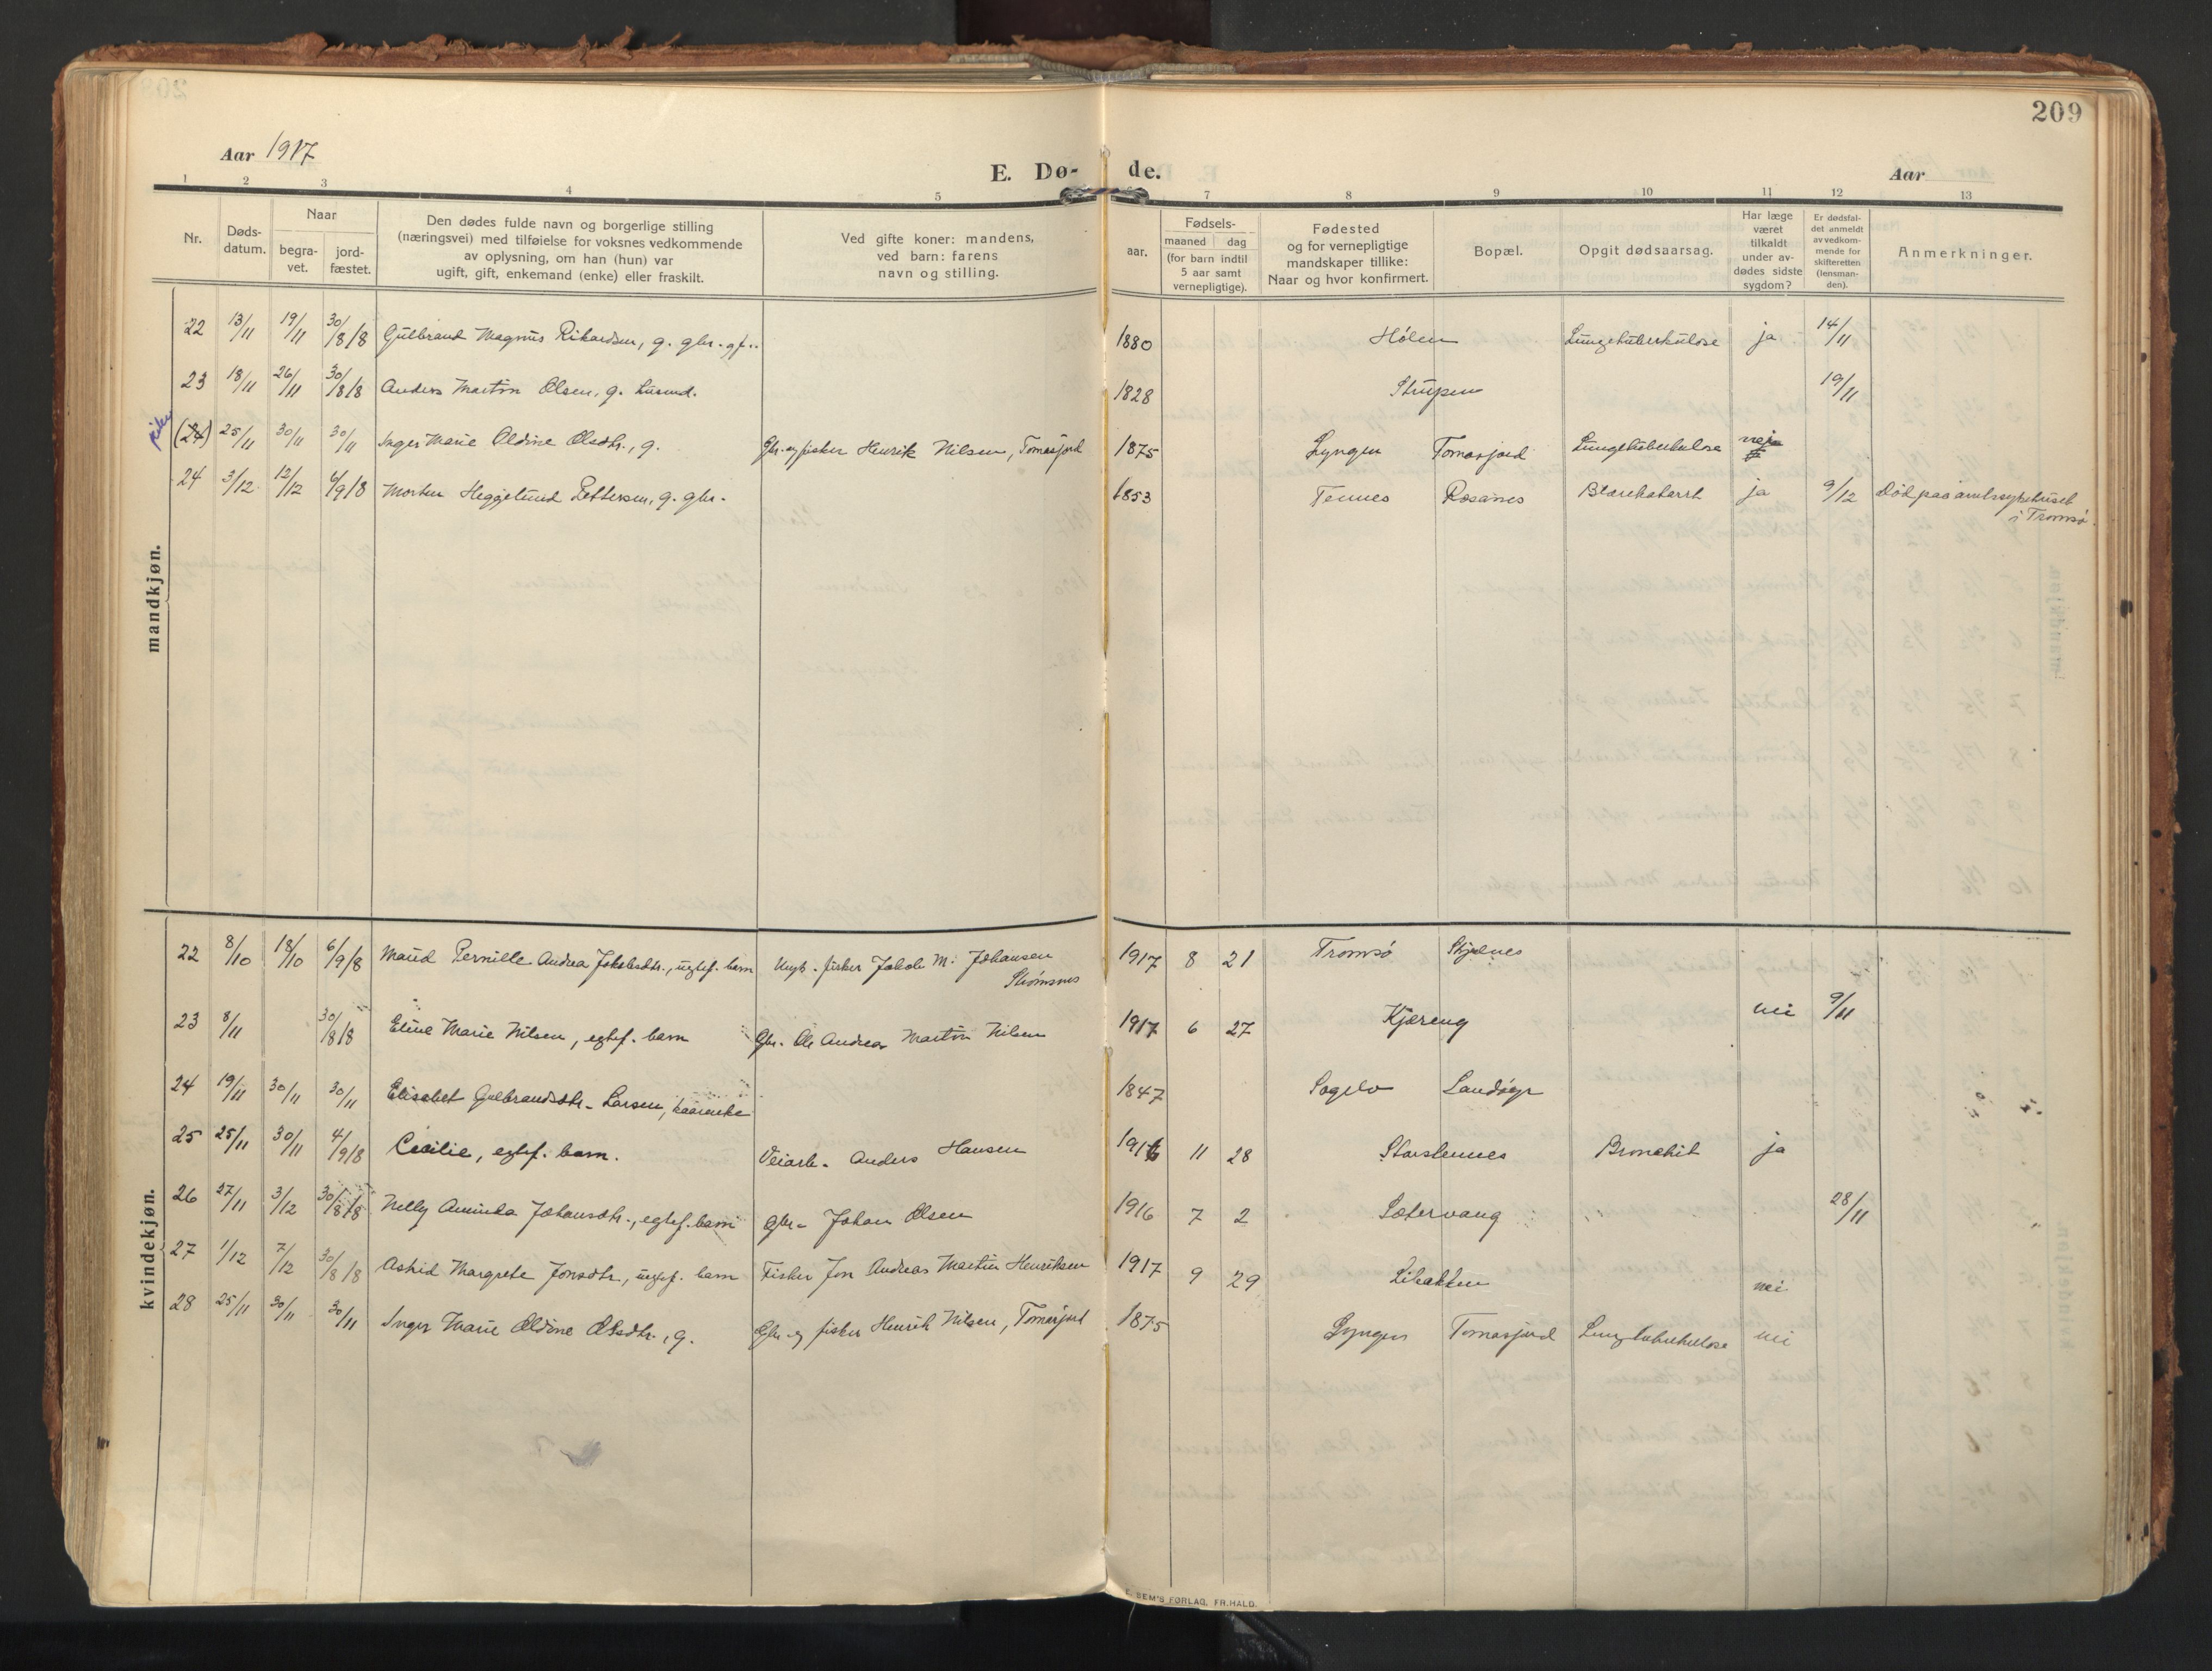 209
Aar 1917
E. Dø-
de.
Aar
1 2 3 4 5 7 8 9 10 11 12 13
Nr.
Døds-
datum.
Naar
begra-
vet.
jord-
fæstet.
Den dødes fulde navn og borgerlige stilling
(næringsvei) med tilføielse for voksnes vedkommende
av oplysning, om han (hun) var
ugift, gift, enkemand (enke) eller fraskilt.
Ved gifte koner: mandens,
ved barn: farens
navn og stilling.
aar.
Fødsels-
maaned dag
(for barn indtil
5 aar samt
vernepligtige).
Fødested
og for vernepligtige
mandskaper tillike:
Naar og hvor konfirmert.
Bopæl.
Opgit dødsaarsag.
Har læge
været
tilkaldt
under av-
dødes sidste
sygdom?
Er dødsfal-
det anmeldt
av vedkom-
mende for
skifteretten
(lensman-
den).
Anmerkninger.
mandkjøn.
22 13/11 19/11 30/8 18 Gulbrand Magnus Rikardsen, g. gbr. 1880 Hølen Lungetuberkulose ja 14/11
23 18/11 26/11 30/8 18 Anders Martin Olsen, g. 1828 Strupen 19/11
(24) 25/11 30/11 30/11 Inger Marie Oldine Olsdtr., g. Gbr. og fisker Henrik Nilsen, Tomasjord 1875 Lyngen Tomasjord Lungetuberkulose nei
24 3/12 12/12 6/9 18 Morten Heggelund Pettersen, g. gbr. 1853 Tennes Rosanes Blærekatarrh ja 9/12 Død paa amtssykehuset
i Tromsø.
kvindekjøn.
22 8/10 18/10 6/9 18 Maud Pernille Andrea Jakobsdtr., uegtef. barn Ungk. fisker Jakob M. Johansen 1917 8 21 Tromsø
Strømsnes
23 8/11 30/8 18 Eline Marie Nilsen, egtef. barn Gbr. Ole Andreas Martin Nilsen 1917 6 27 Kjæreng nei 9/11
24 19/11 30/11 30/11 Elisabet Gulbrandsdtr. Larsen, 1847 Sagelv Landøyr
25 25/11 30/11 4/9 18 Cecilie, egtef. barn. Veiarb. Anders Hansen 1916 11 28 Storstennes Bronchit ja
26 27/11 3/12 30/8 18 Nelly Aminda Johansdtr., egtef. barn gbr. Johan Olsen 1916 7 2 Sætervang 28/11
27 1/12 7/12 30/8 18 Astrid Margrete Jonsdtr., uegtef. barn Fisker Jon Andreas Martin Henriksen 1917 9 29 Libakken nei
28 25/11 30/11 30/11 Inger Marie Oldine Olsdtr., g. Gbr. og fisker Henrik Nilsen, Tomasjord 1875 Lyngen Tomasjord Lungetuberkulose nei
E. SEM'S FORLAG, FR.HALD.